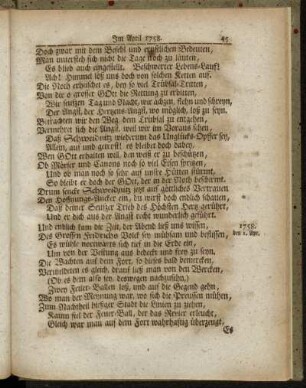 Im April 1758. 45
Doch zwar mit dem Befehl und ernstlichen Bedeuten,
Man unterließ sich nicht die Tage noch zu läuten,
Es blieb auch eingestellt. Beschwerter Lebens-Lauff!
Ach! Himmel löß uns doch von solchen Ketten auf.
Die Noth erhuldet es, bey so viel Trübsal-Tritten,
Von dir o grosser GOtt die Rettung zu erbitten,
Wir seufzen Tag und Nacht, wir ächzen, flehn und schreyn,
Der Angst, der Herzens-Angst, wo möglich, loß zu seyn.
Betrachten wir den Weg dem Trübsal zu entgehen,
Vermehret sich die Angst, weil wir im Voraus sehen,
Daß Schweidnitz wiederum das Unglücks-Opfer sey,
Allein, aut und getrost! es bleibet doch dabey,
Wen GOtt erhalten will, den weiß er zu beschützen,
Ob Mörser und Canons noch so viel Feuer spritzen,
Und ob man noch so sehr auf unsre Hütten stürmt,
So bleibt er doch der GOtt, der in der Noth beschirmt.
Drum senke Schweidnitz zwey auf göttliches Vertrauen
Den Hoffnungs-Ancker ein, du wirst doch endlich schauen,
Daß deiner Seufzer Trieb des Höchsten Herz gerührt,
Und er dich aus der Angst recht wunderlich geführt.
Und endlich kam die Zeit, der Abend ließ uns wissen, 1758.
Des Grossen Friedrichs Volck sey mühsam und beflissen, den 1. Apr.
Es wühle vorwärts sich tief in die Erde ein,
Um von der Vestung aus bedeckt und frey zu seyn.
Die Wachten auf dem Fort, so dieses bald bemercken,
Vermeldeten es gleich, drauf ließ man von den Wercken,
(Ob es dem also sey, deswegen nachzusehn,)
Zwey Feuer-Ballen loß, und auf die Gegend gehn,
Wo man der Meynung war, wo sich die Preussen mühten,
Zum Nachtheil dieser Stadt die Linien zu ziehen,
Kaum fiel der Feuer-Ball, der das Revier erleucht,
Gleich war man auf dem Fort wahrhafftig überzeugt.
Es